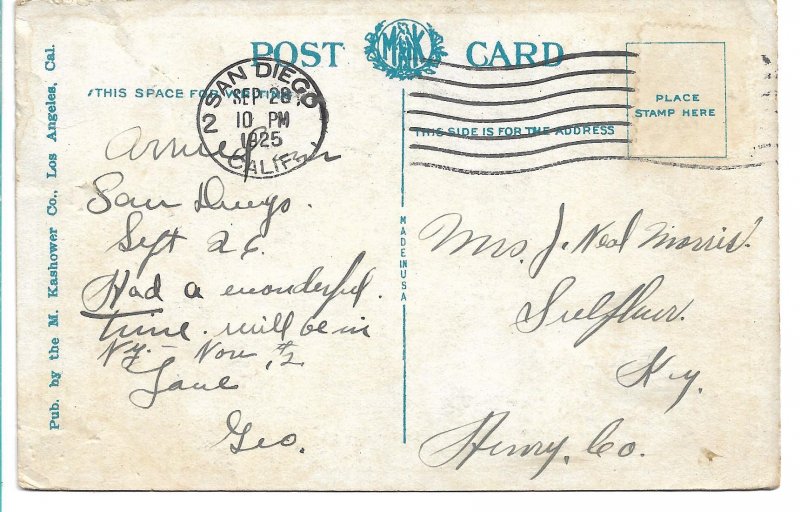 POST CARD
MHK
THIS SPACE FOR WRITING
SAN DIEGO
SEP 28
10 PM
1925
CALIF.
2
PLACE
STAMP HERE
THIS SIDE IS FOR THE ADDRESS
Pub. by the M. Kashower Co., Los Angeles, Cal.
MADE IN USA
Arrived in
San Diego.
Sept 26.
Had a wonderful
time. will be in
Ny. - Nov. #2
Love
Geo.
Mrs. J. Neal Morris.
Sulphur.
Ky.
Henry. Co.